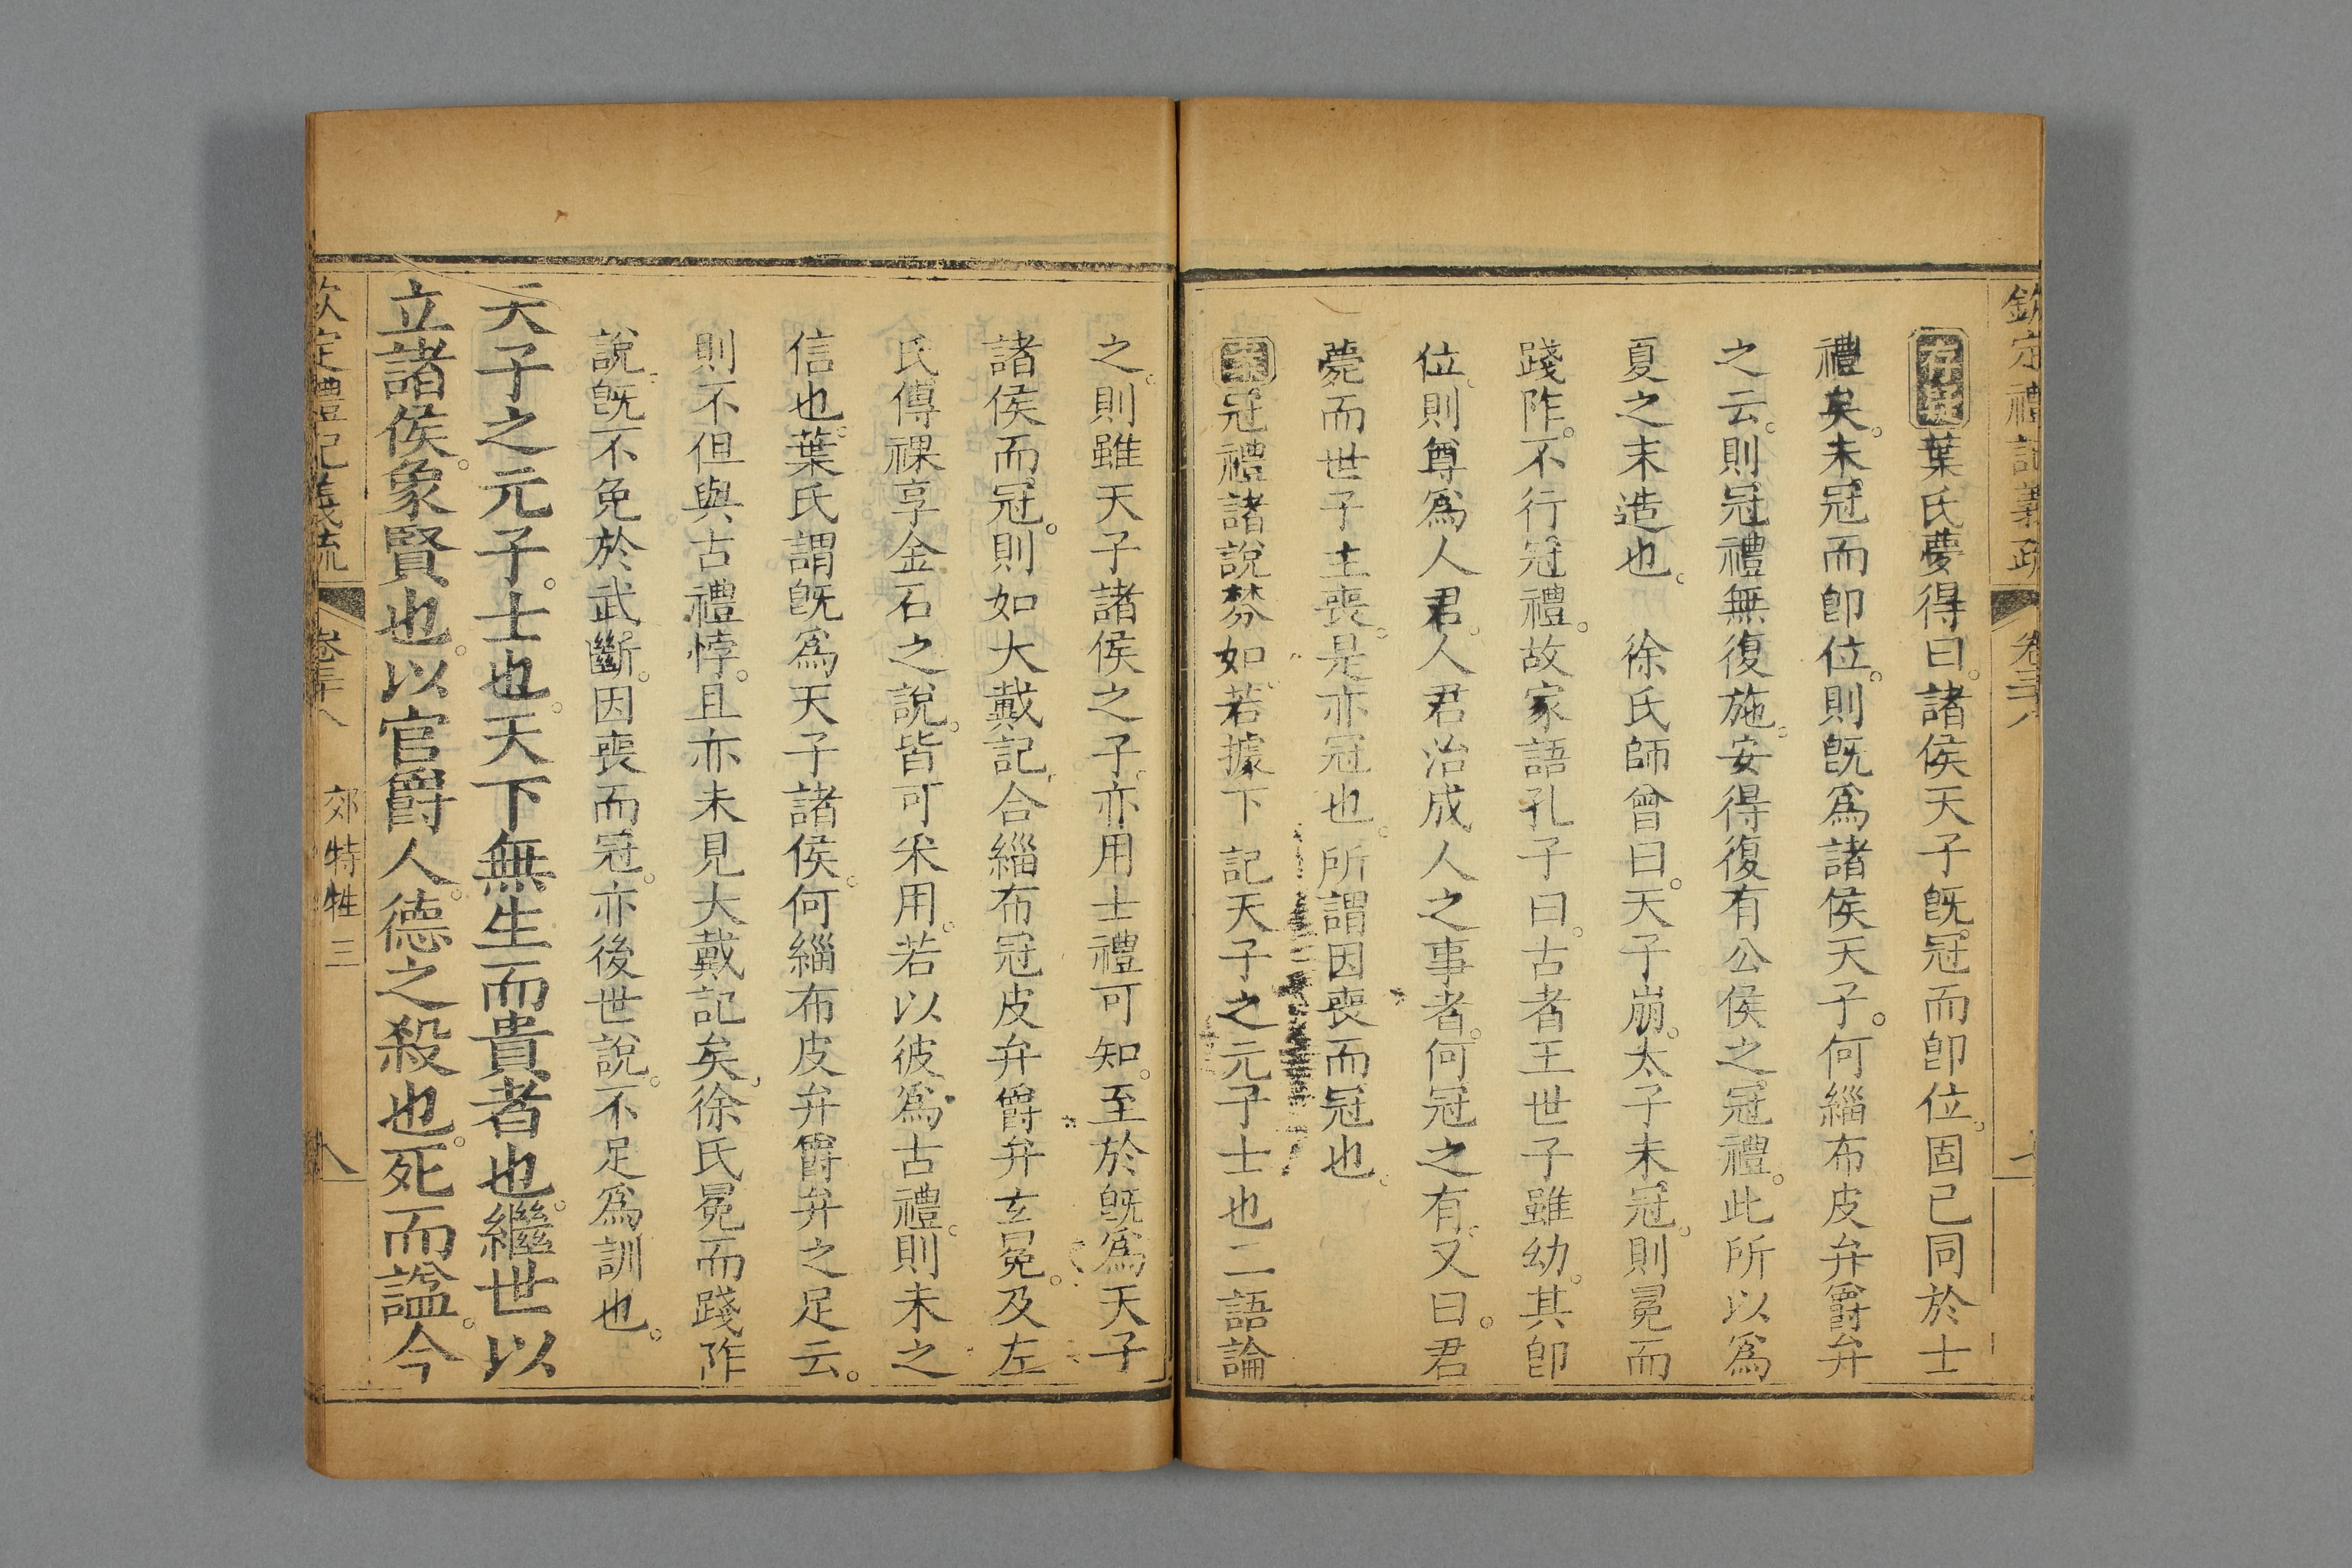 欽定禮記義疏 卷三八
存異葉氏夢得曰諸侯天子旣冠而卽位固已同於士
禮矣未冠而卽位則旣爲諸侯天子何緇布皮弁爵弁
之云則冠禮無復施安得復有公侯之冠禮此所以爲
夏之末造也 徐氏師曾曰天子崩太子未冠則冕而
踐阼不行冠禮故家語孔子曰古者王世子雖幼其卽
位則尊爲人君人君治成人之事者何冠之有又曰君
薨而世子主喪是亦冠也所謂因喪而冠也
案冠禮諸說棼如若據下記天子之元子士也二語論
之則雖天子諸侯之子亦用士禮可知至於旣爲天子
諸侯而冠則如大戴記合緇布冠皮弁爵弁玄冕及左
氏傳祼享金石之說皆可采用若以彼爲古禮則未之
信也葉氏謂旣爲天子諸侯何緇布皮弁爵弁之足云
則不但與古禮悖且亦未見大戴記矣徐氏冕而踐阼
說旣不免於武斷因喪而冠亦後世說不足爲訓也
天子之元子士也天下無生而貴者也繼世以
立諸侯象賢也以官爵人德之殺也死而諡今
欽定禮記義疏 卷三十八 郊特牲 三 八